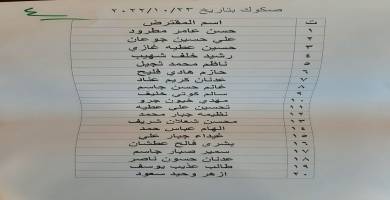 صكوك بتاريخ ٢٠٢٢/١٠/٢٣
ت اسم المقترض
١ حسن عامر مطرود
٢ علي حسين جوعان
٣ حسين عطيه غازي
٤ رشيد خلف شهيب
٥ ناظم محمد ثجيل
٦ حازم هادي فليح
٧ عدنان كريم عناد
٨ غانم حسن جاسم
٩ سالم كوتي خليف
١٠ مهدي خيون جرو
١١ تحسين علي عطيه
١٢ نظيمه جبار محمد
١٣ محسن شعلان شريف
١٤ الهام عباس حمد
١٥ غيداء جبار علي
١٦ بشرى فالح عطشان
١٧ سمير صبار جاسم
١٨ عدنان حسون ناصر
١٩ طالب عذيب يوسف
٢٠ ازهر وحيد سعود